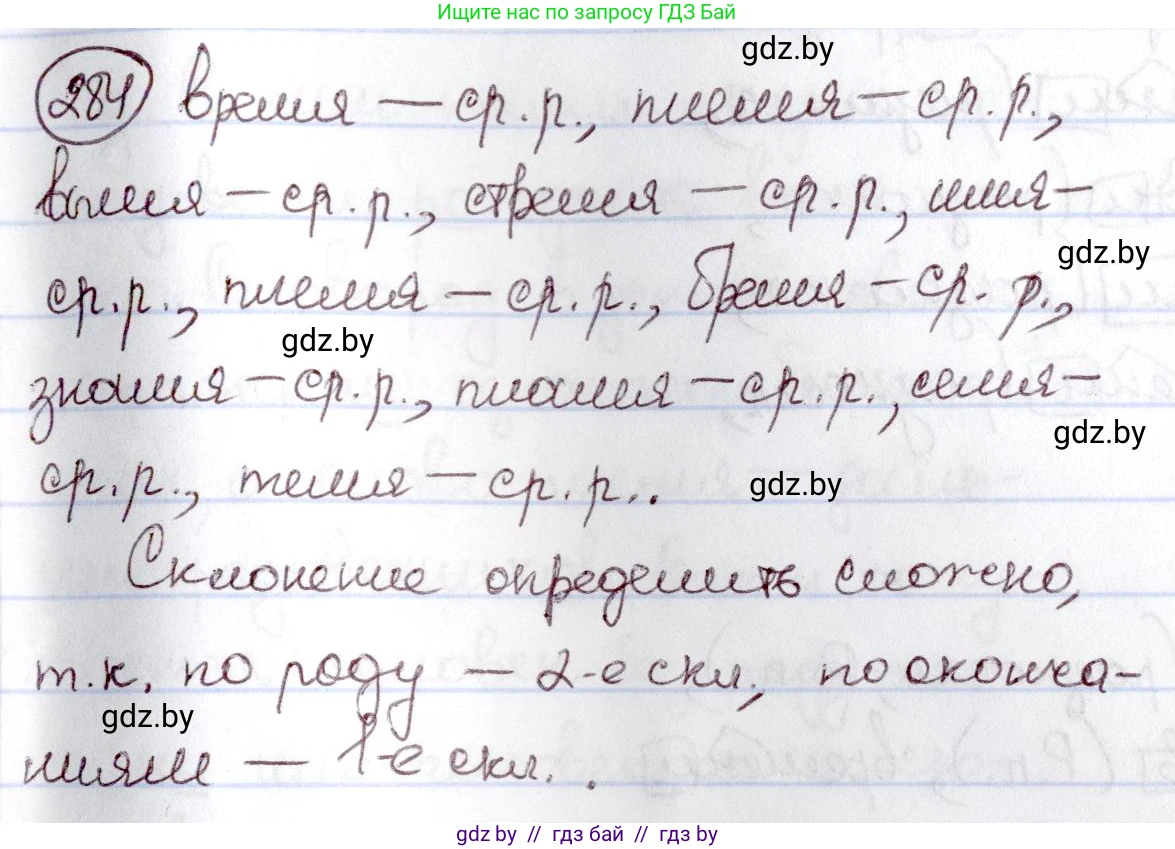 Ищите нас по запросу ГДЗ Бай
gdz.by
284 время — ср.р., племя — ср.р.,
вымя — ср.р., стремя — ср.р., имя —
gdz.by
ср.р., племя — ср.р., бремя — ср.р.,
gdz.by
знамя — ср.р., пламя — ср.р., семя —
gdz.by
ср.р., темя — ср.р..
gdz.by
Склонение определить сложно,
т.к. по роду — 2-е скл., по оконча-
gdz.by
ниям — 1-е скл..
gdz.by // гдз бай // gdz by